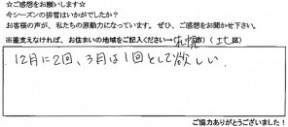 ☆ご感想をお願いします☆
今シーズンの排雪はいかがでしたか？
お客様の声が、私たちの原動力になっています。ぜひ、ご感想をお聞かせ下さい。
※差支えなければ、お住まいの地域をご記入ください→札幌市（北区）
12月に2回、3月は1回として欲しい。
ご協力ありがとうございました！